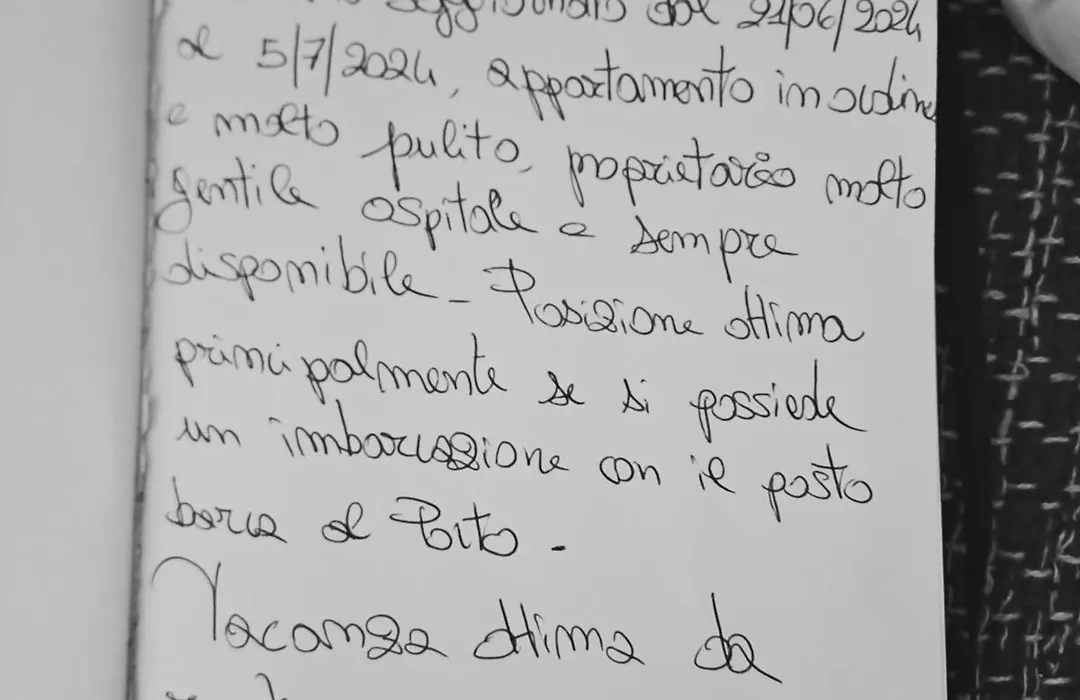 soggiornato dal 21/06/2024
al 5/7/2024, appartamento in ordine
e molto pulito, proprietario molto
gentile ospitale e sempre
disponibile - Posizione ottima
principalmente se si possiede
un imbarcazione con il posto
barca al Porto -
Vacanza ottima da